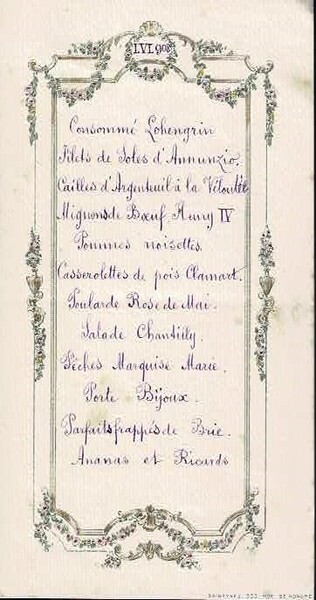 I.VI.908
Consommé Lohengrin
Filets de Soles d'Annunzio.
Cailles d'Argenteuil à la Veloutée
Mignons de Bœuf Henry IV
Pommes noisettes.
Casserolettes de pois Clamart.
Poularde Rose de Mai.
Salade Chantilly.
Pêches Marquise Marie.
Porte Bijoux.
Parfaits frappés de Brie.
Ananas et Ricards